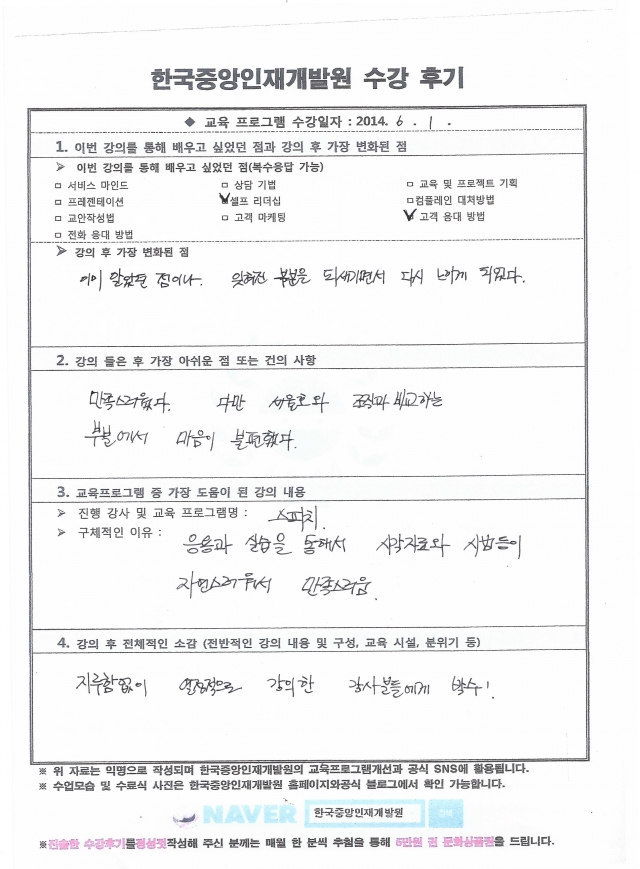 한국중앙인재개발원 수강 후기
◆ 교육 프로그램 수강일자 : 2014. 6 . 1 .
1. 이번 강의를 통해 배우고 싶었던 점과 강의 후 가장 변화된 점
➢ 이번 강의를 통해 배우고 싶었던 점(복수응답 가능)
□ 서비스 마인드 □ 상담 기법 □ 교육 및 프로젝트 기획
□ 프레젠테이션 ☑셀프 리더십 □컴플레인 대처방법
□ 교안작성법 □ 고객 마케팅 ☑ 고객 응대 방법
□ 전화 응대 방법
➢ 강의 후 가장 변화된 점
알았던 점이나. 잊혀진 부분을 되새기면서 다시 느끼게 되었다.
2. 강의 들은 후 가장 아쉬운 점 또는 건의 사항
만족스러웠다. 다만 조직과 비교하는
부분에서 마음이 불편했다.
3. 교육프로그램 중 가장 도움이 된 강의 내용
➢ 진행 강사 및 교육 프로그램명 : 스피치.
➢ 구체적인 이유 :
응용과 실습을 통해서 시각자료와 시범등이
자연스러워서 만족스러움.
4. 강의 후 전체적인 소감 (전반적인 강의 내용 및 구성, 교육 시설, 분위기 등)
지루함없이 열정적으로 강의한 강사분들에게 박수!
※ 위 자료는 익명으로 작성되며 한국중앙인재개발원의 교육프로그램개선과 공식 SNS에 활용됩니다.
※ 수업모습 및 수료식 사진은 한국중앙인재개발원 홈페이지와공식 블로그에서 확인 가능합니다.
NAVER 한국중앙인재개발원 검색
※진솔한 수강후기를정성껏작성해 주신 분께는 매월 한 분씩 추첨을 통해 5만원 권 문화상품권을 드립니다.